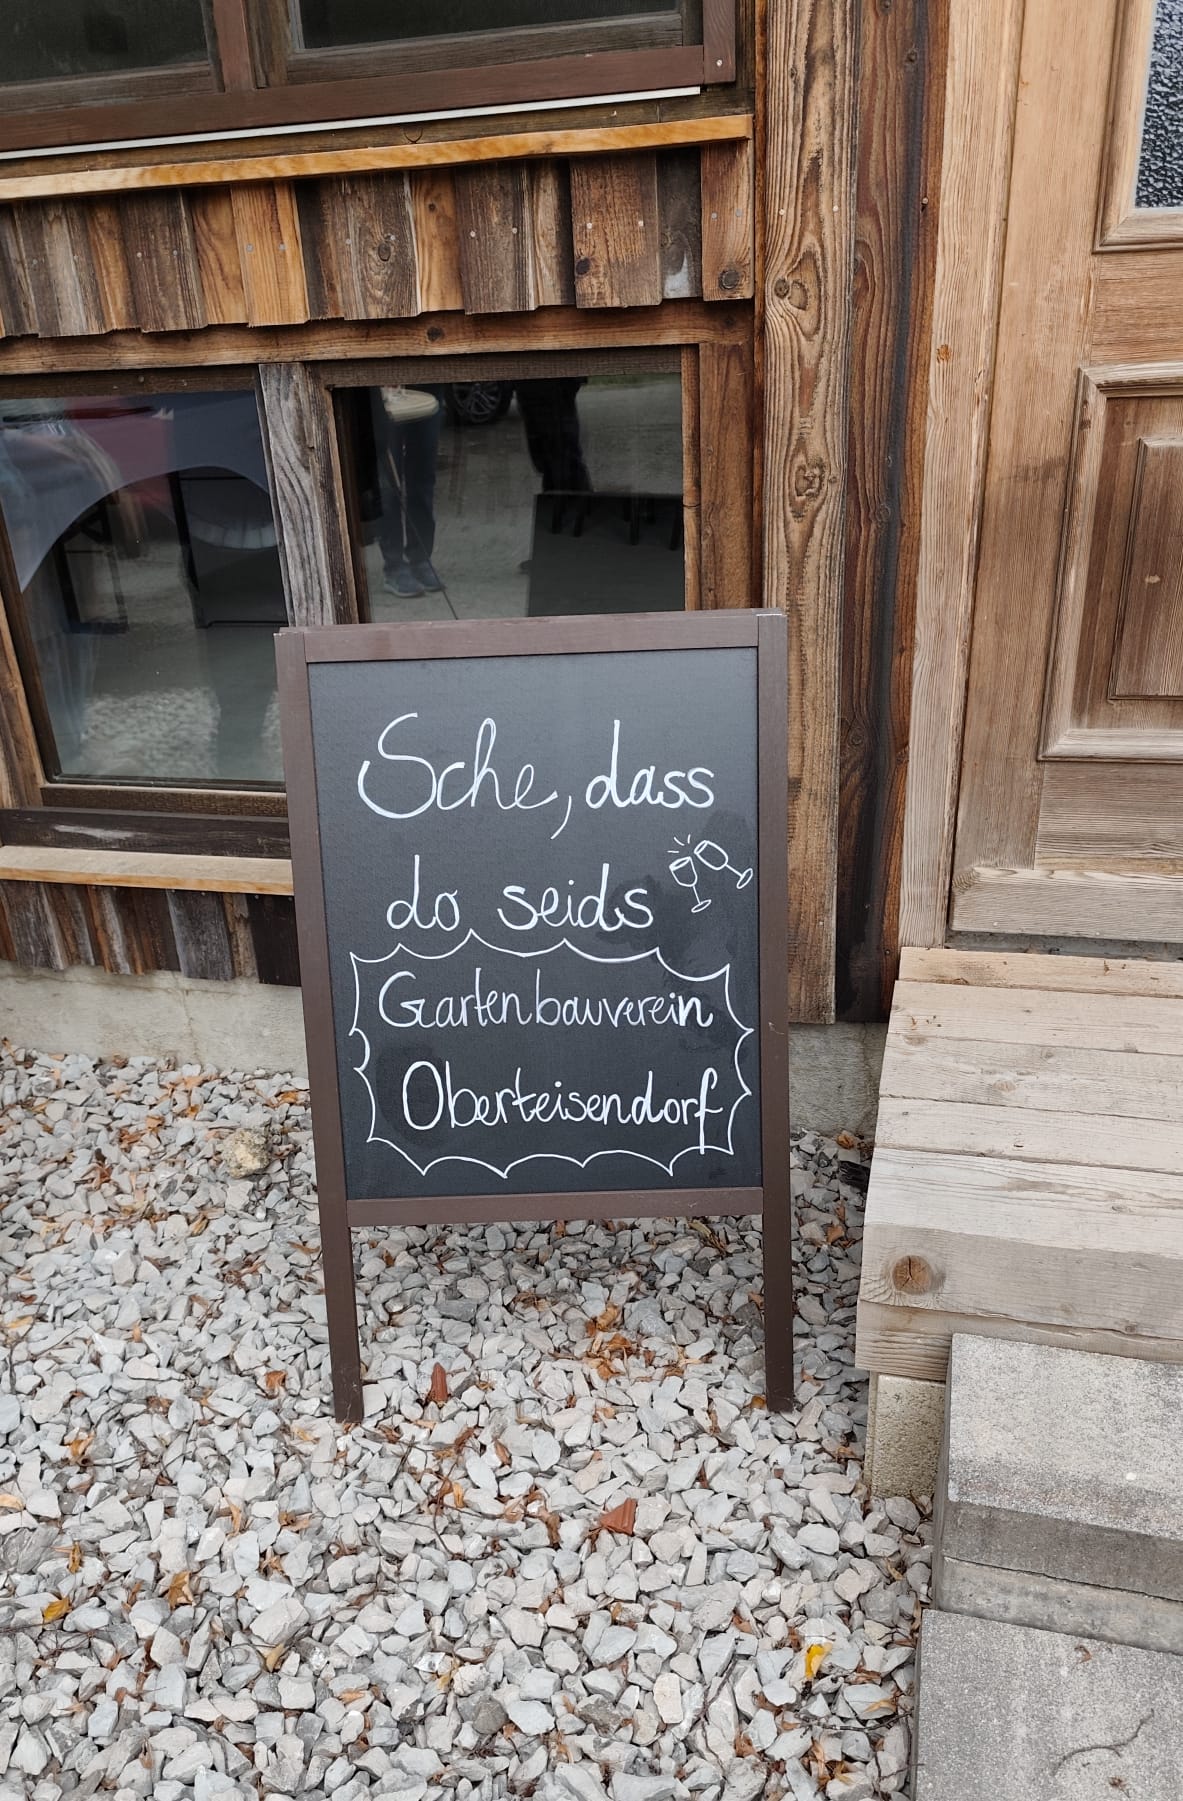 Sche, dass
do seids
Gartenbauverein
Oberteisendorf